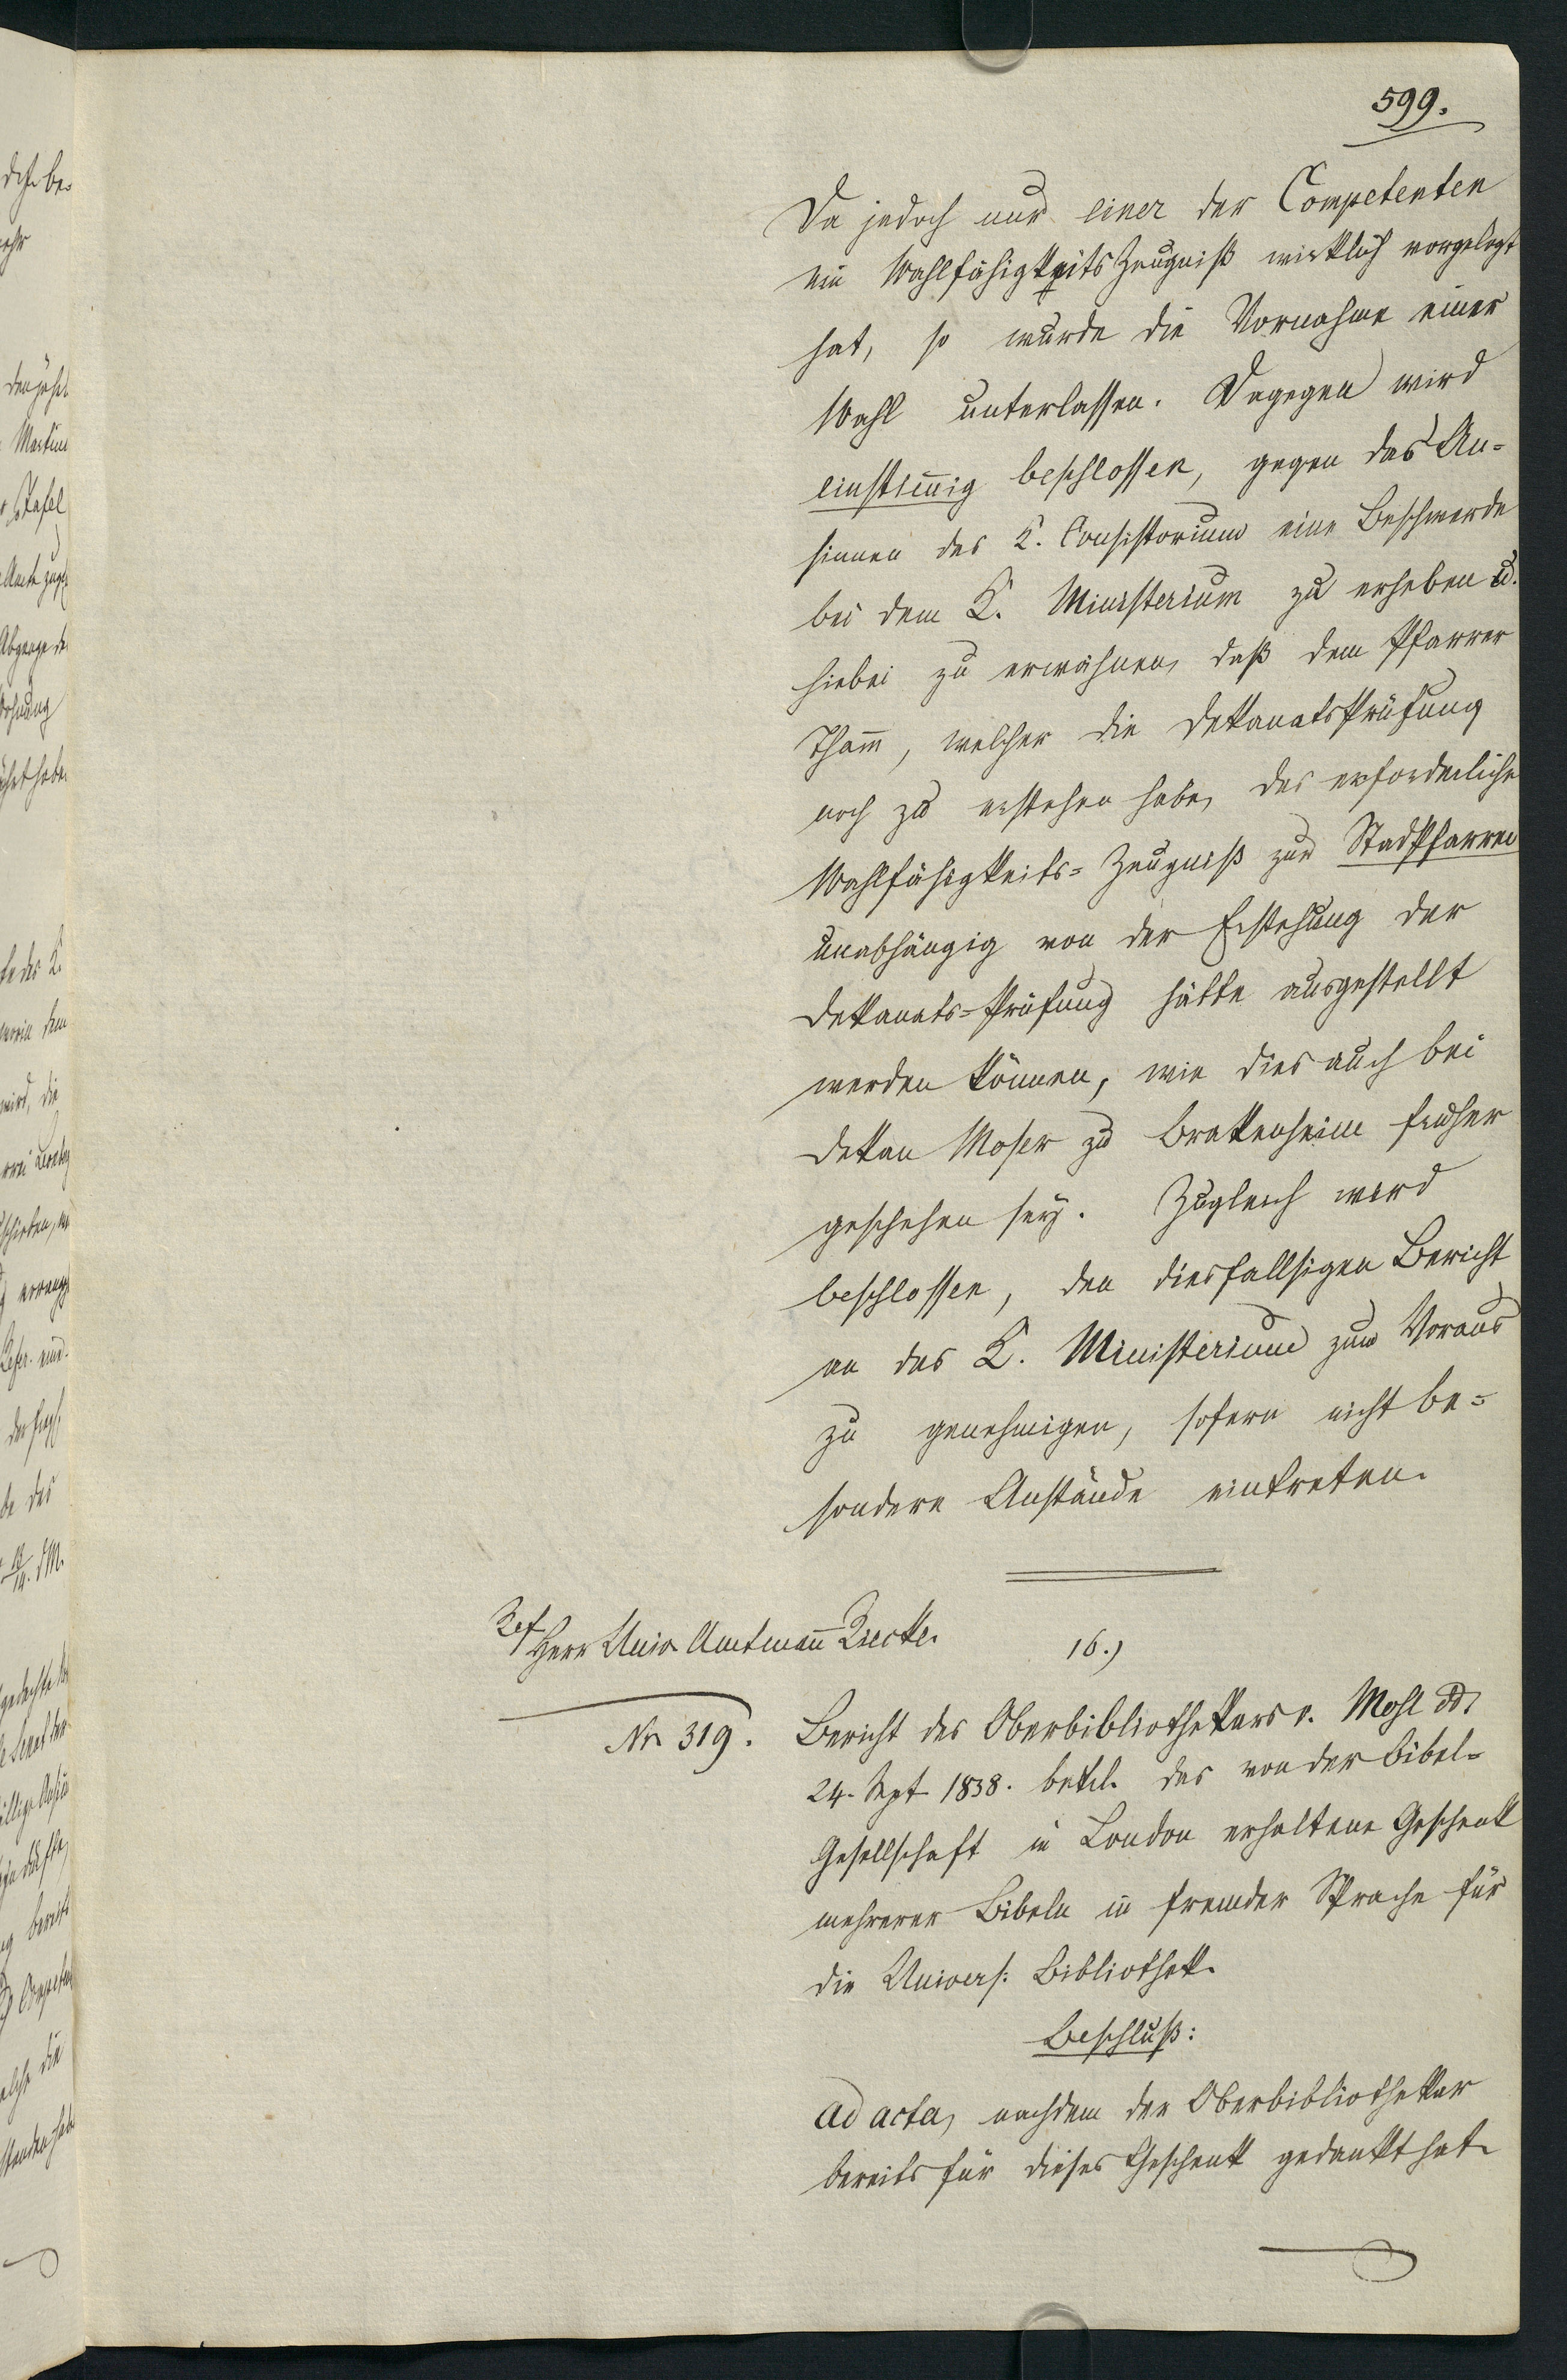 599.
Da jedoch nur einer der Competenten
ein WahlfähigkeitsZeugniß wirklich vorgelegt
hat, so wurde die Vornahme einer
Wahl unterlassen. Dagegen wird
einstim̄ig beschlossen, gegen das An=
sinnen des K. Consistorium eine Beschwerde
bei dem K. Ministerium zu erheben u.
hiebei zu erwähnen, daß dem Pfarrer
Tham̄, welcher die DekanatsPrüfung
noch zu erstehen habe, das erforderliche
Wahlfähigkeits=Zeugniß zur StadtPfarrei
unabhängig von der Erstehung der
Dekanats=Prüfung hätte ausgestellt
werden können, wie dies auch bei
Dekan Moser zu Brakenheim früher
geschehen sey. Zugleich wird
beschlossen, den diesfallsigen Bericht
an das K. Ministerium zum Voraus
zu genehmigen, sofern nicht be=
sondere Anstände eintreten.
Ref.
Herr Univ. Amtman̄ Riecke.
16.)
Nr. 319.
Bericht des Oberbibliothekars v. Mohl dd.
24. Sept 1838. betrl. das von der Bibel=
Gesellschaft in London erhaltene Geschenk
mehrerer Bibeln in fremder Sprache für
die Univers: Bibliothek.
Beschluß:
ad acta, nachdem der Oberbibliothekar
bereits für dieses Geschenk gedankt hat.